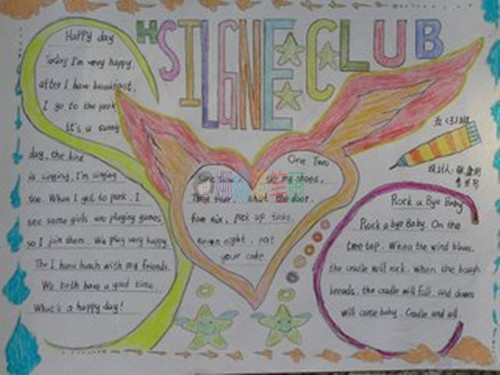 HSILGNE CLUB
Happy day
Today I'm very happy,
after I have breakfast,
I go to the park
It's a sunny
day, the bird
is singing, I'm singing
too. When I get to park, I
see some girls are playing games
so I join them. We play very happy.
The I have lunch with my friends.
We both have a good time.
What's a happy day!
One Two
One two, my shoes,
shut the door,
Five six, pick up sticks,
seven eight, not
your cake.
Rock a Bye Baby
Rock a bye Baby. On the
tree top. When the wind blows,
the cradle will rock. When the bough
breads, the cradle will fall, and down
will come baby. Cradle and all.